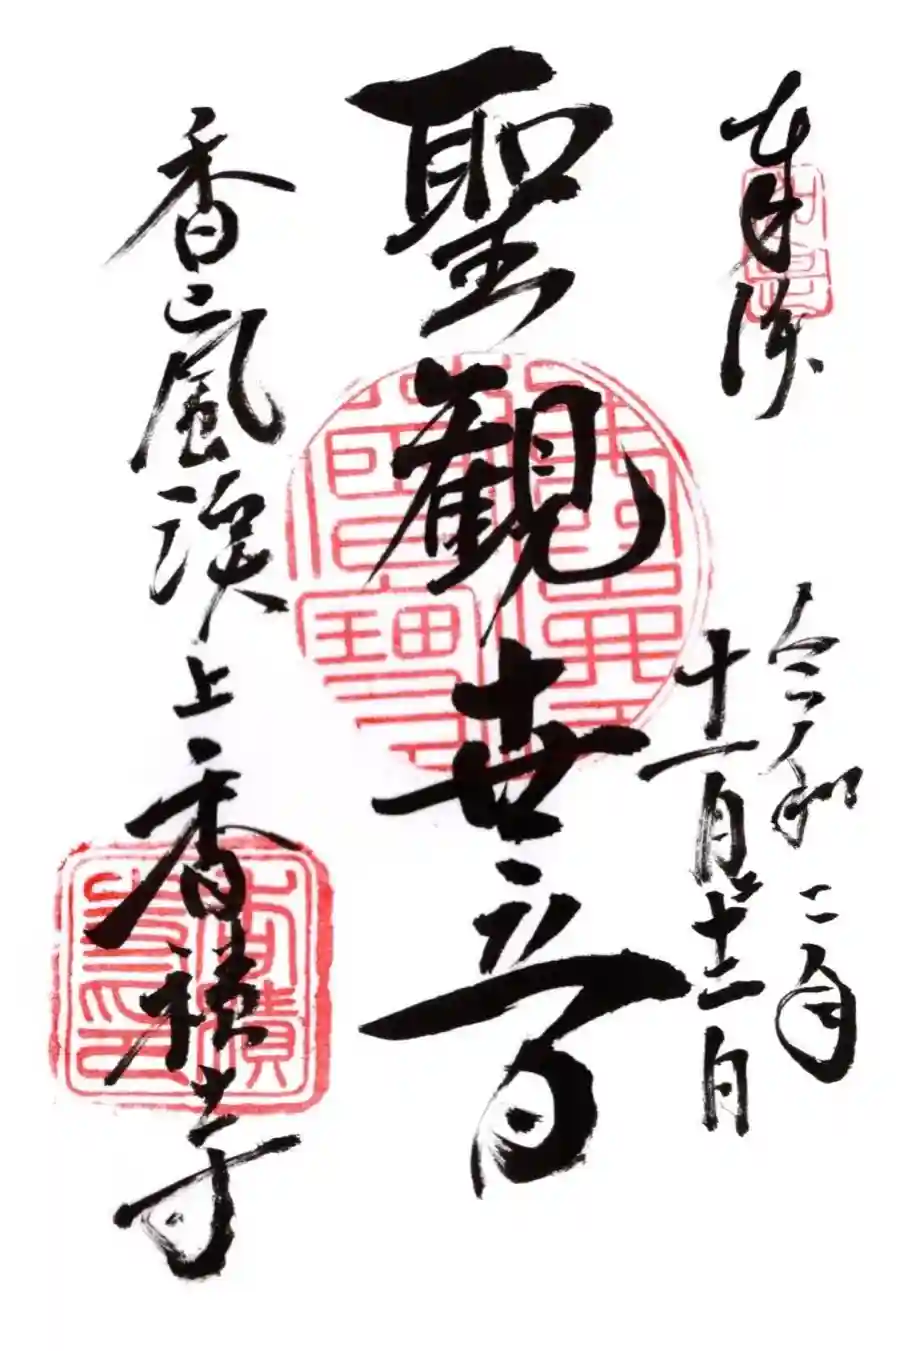 奉拝
令和二年
十一月廿二日
聖観世音
香嵐渓上香積寺